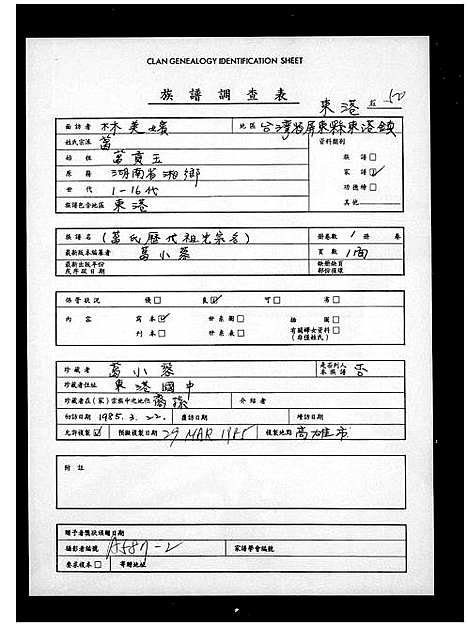 CLAN GENEALOGY IDENTIFICATION SHEET
族譜調查表
東港
面訪者 林美 地區 台灣省屏東縣東港鎮
姓氏宗派 葛 資料類別
始祖 葛貢玉 族譜□
原籍 湖南省湘鄉 家譜☑
世代 1-16代 功德榜□
族譜包含地區 東港 其他
族譜名 (葛氏歷代祖先宗名) 冊卷數 1 冊 卷
最新版本編纂者 葛小蓉 頁數 1面
最新出版年份或序跋日期 缺冊缺頁部份損壞
保管狀況 優□ 良☑ 可□ 劣□
內容 寫本☑ 世系圖□ 插圖□
刊本□ 世系表□ 有關婦女資料□(非僅姓氏)
珍藏者 葛小蓉 是否列入本族譜 否
珍藏者住址 東港國中
珍藏者在(家)宗族中之地位 裔孫 介紹者
初訪日期 1985.3.22. 複訪日期 增訪日期
允許複製☑ 預擬複製日期 29 MAR 1985 複製地點 高雄市
附註
贈予者獎狀頒贈日期
攝影者編號 A587-2 家譜學會編號
要求複本□ 寄贈地址